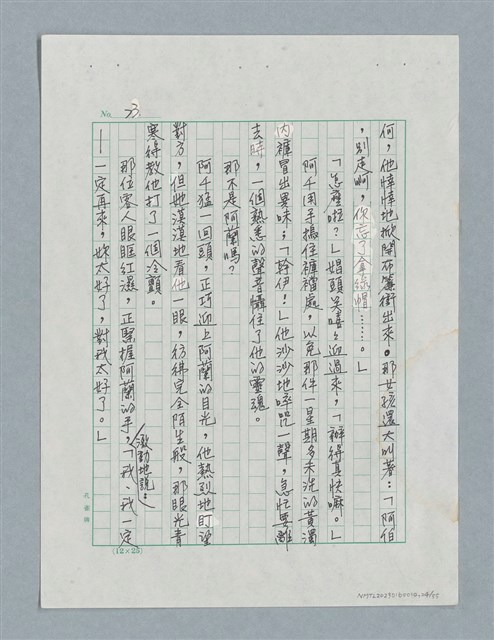 No. 23
何，他悻悻地掀開布簾衝出來。那女孩還大叫著：「阿伯
，別走啊，你忘了拿綠帽……。」
「怎麼啦？」娼頭笑嘻嘻迎過來，「辦得真快嘛。」
阿千用手摀住褲襠處，以免那件一星期多未洗的黃濁
內褲冒出異味；「幹伊！」他沙沙地啐咒一聲，急忙要離
去時，一個熟悉的聲音懾住了他的靈魂。
那不是阿蘭嗎？
阿千猛一回頭，正巧迎上阿蘭的目光，他熱烈地盯望
對方，但她漠漠地看他一眼，彷彿完全陌生般，那眼光青
寒得教他打了一個冷顫。
那位客人眼眶紅濕，正緊握阿蘭的手，激動地說：「我、我一定
——一定再來，妳太好了，對我太好了。」
(12×25)